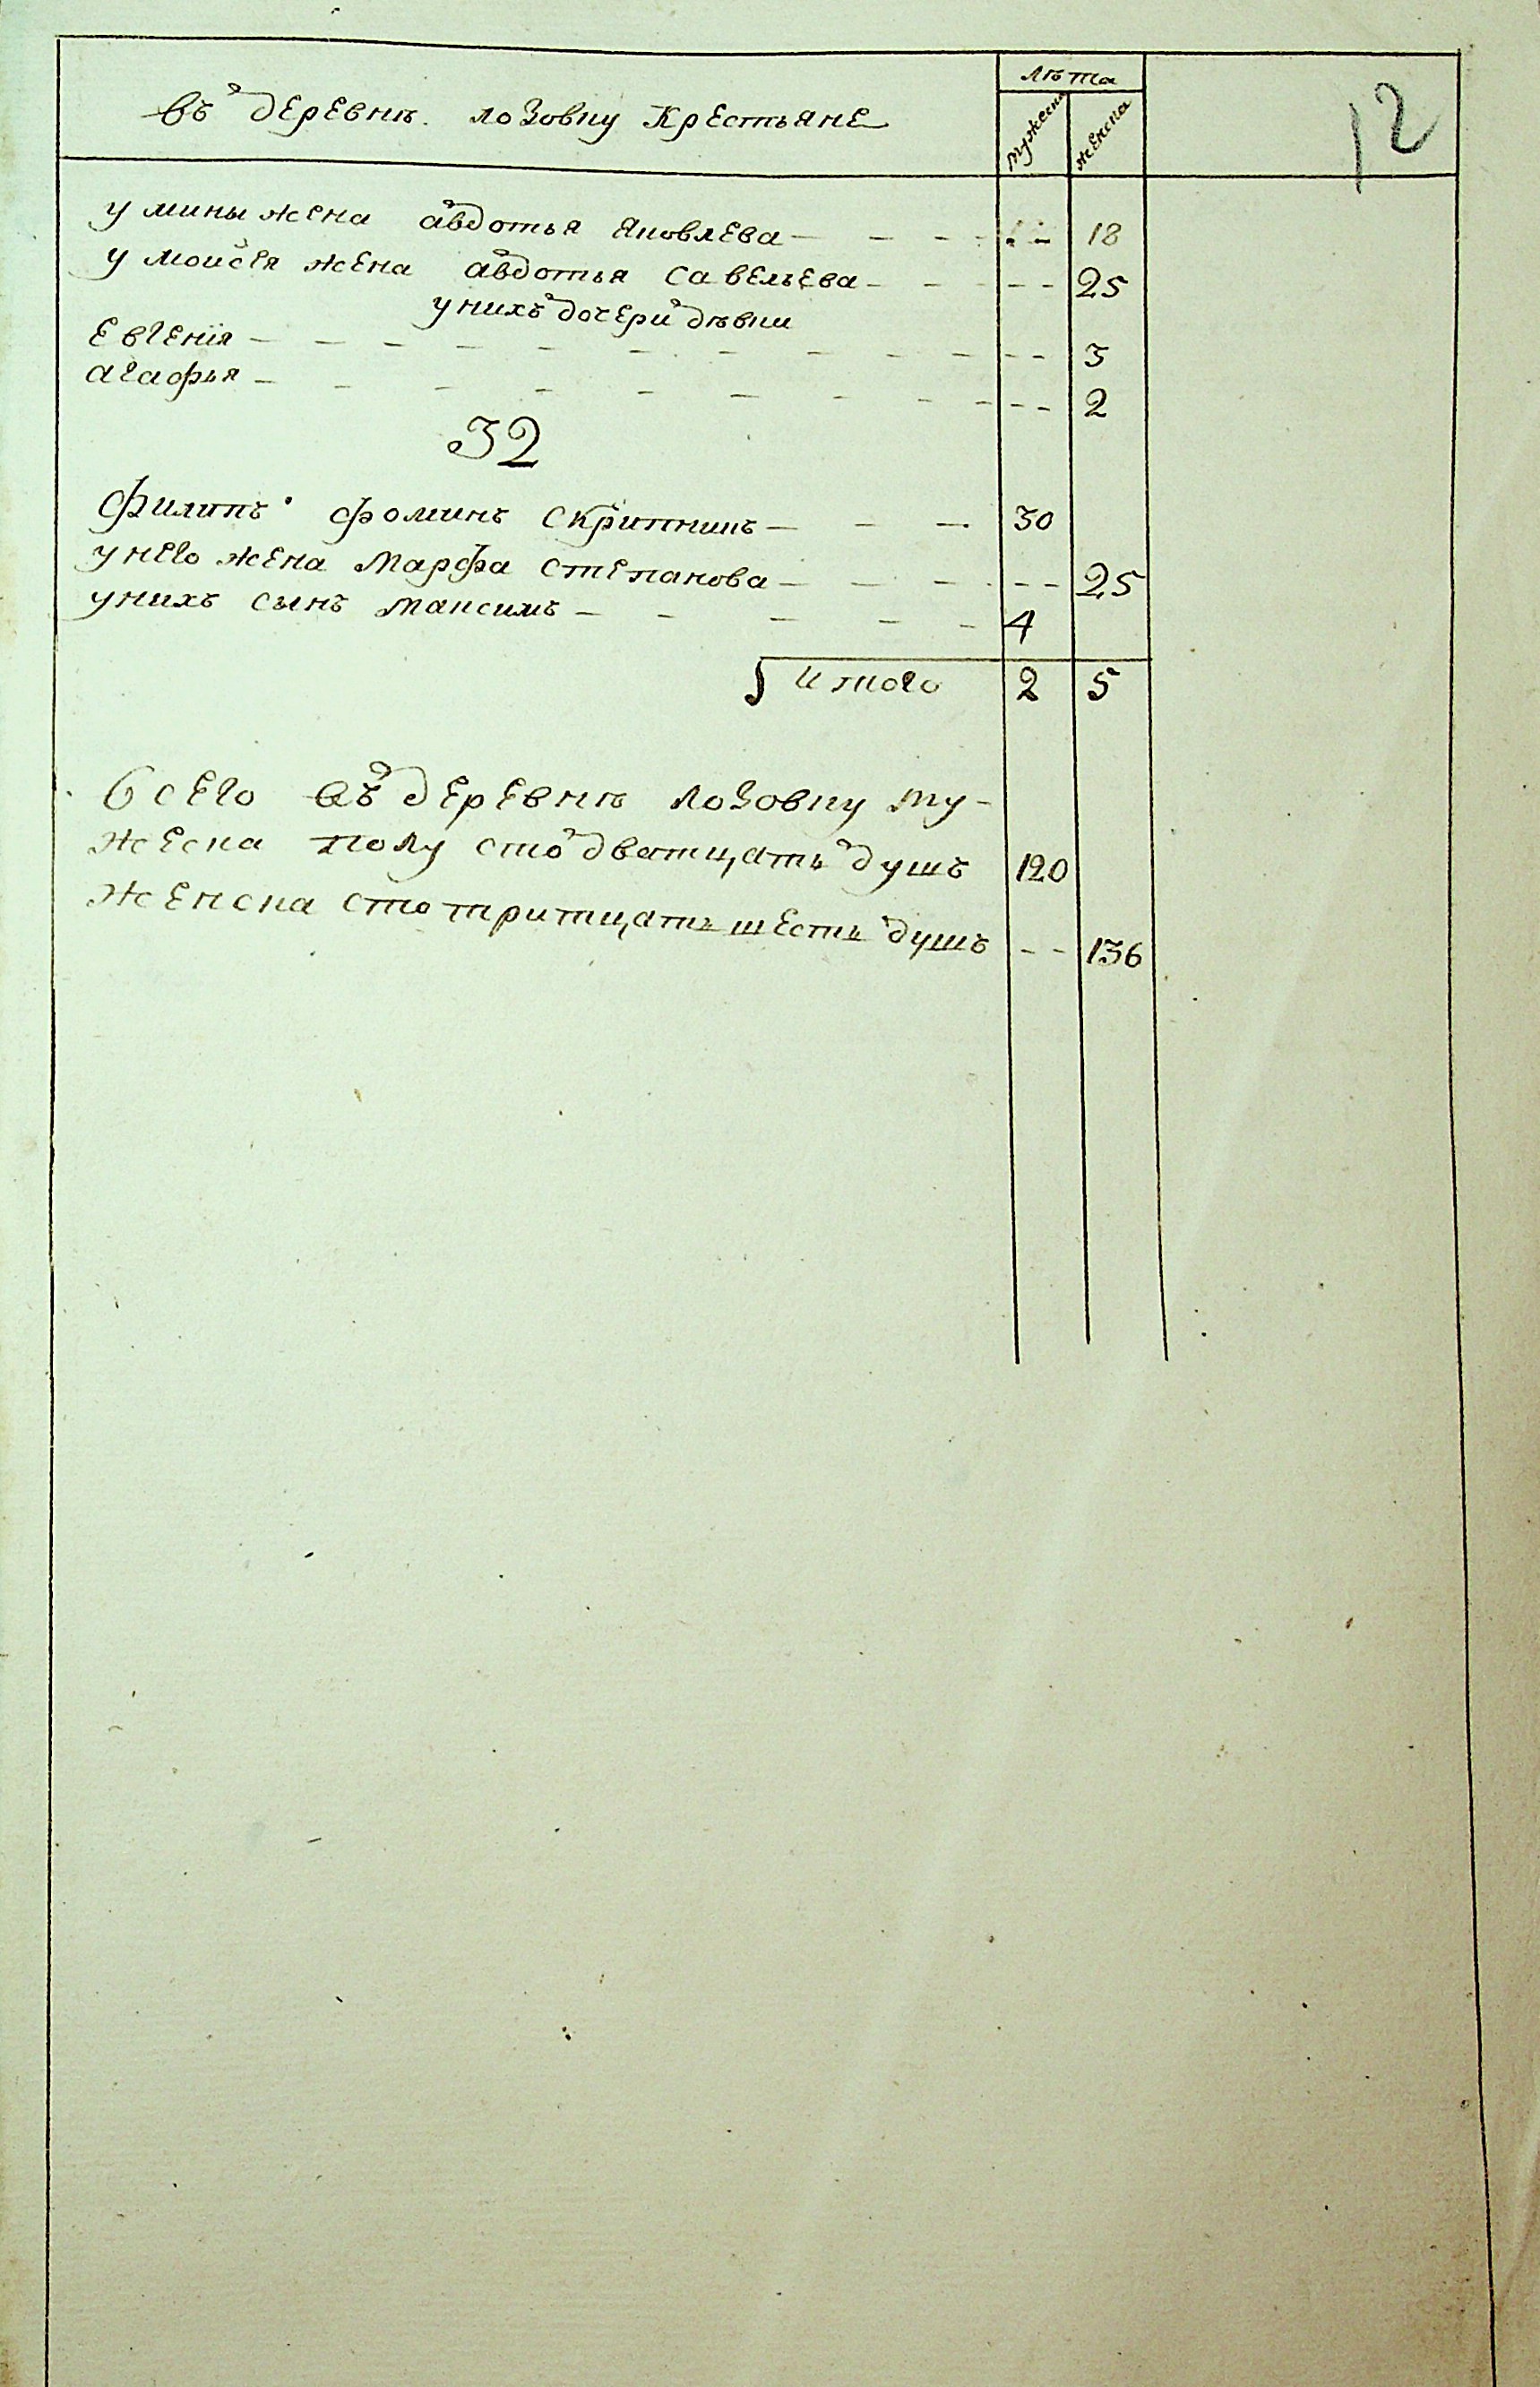 Въ деревнѣ лозовку крестьяне
лѣта
мужеска
женска
12
у мины жена авдотья яковлева — — — 18
у моисея жена авдотья савельева — — — 25
у нихъ дочери дѣвки
евгенія — — — 3
агафья — — — 2
32
филипъ фоминъ скрипникъ — — — 30
у него жена марфа степанова — — — 25
у нихъ сынъ максимъ — — — 4
итого 2 5
всего въ деревнѣ лозовку му-
жеска полу сто дватцать душъ 120
женска сто тритцать шесть душъ — — 136